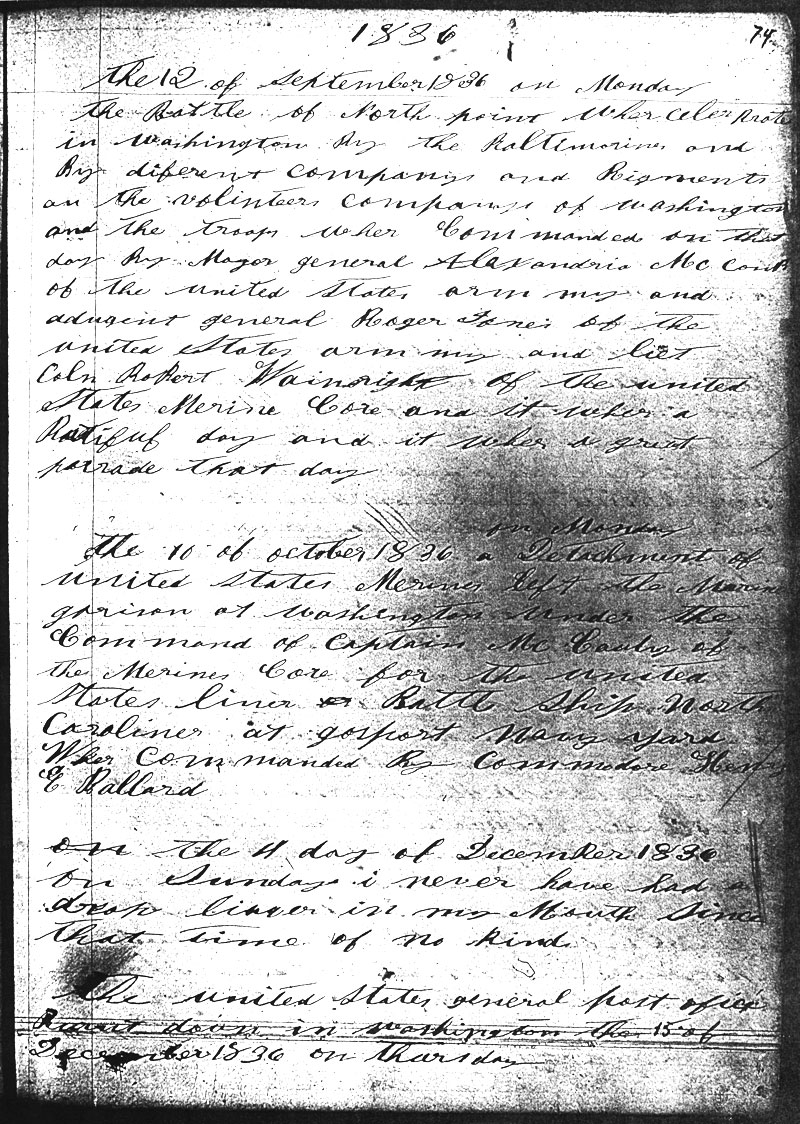 1836
74
the 12 of September 1836 on Monday
the Battle of North point wher celer Brate
in washington By the Baltimorines and
By diferent companys and Rigments
an the volinteers companys of washington
and the troops wher Commanded on that
day By Mayor general Alaxandria Mc Comb
of the united States arm my and
adugint general Roger Jones of the
united States arm my and liet
Coln Robert Wainright of the united
States Merine Core and it wher a
Batiful day and it wher a grat
parade that day
on Monday
the 10 of october 1836 a Detachment of
united States Merines left the Marine
garison at washington under the
Command of Captain Mc Cauly of
the Merines Core for the united
States liner Battle Ship North
Caroliner at gosport Navy yard
Wher Commanded By Commodore Henry
E Ballard
on the 4 day of December 1836
on Sunday i never have had a
drop liquer in my Mouth Since
that time of no kind
The united States general post office
Burnt down in washington the 15 of
December 1836 on thursday